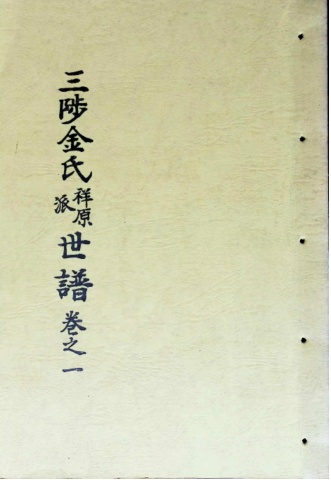 三陟金氏祥原派世譜卷之一